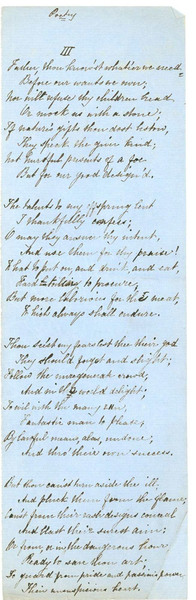 Poetry
III
Father, thou know'st whate'er we need
Before our wants we own,
Nor wilt refuse thy children bread
Or mock us with a stone;
If nature's gifts thou dost bestow,
They speak the giver kind;
Not hurtful presents of a foe
But for our good design'd.
The talents to my offspring lent
I thankfully confess;
O may they answer thy intent,
And use them for thy praise!
What to put on and drink, and eat,
to procure,
But more laborious for the meat,
Which always shall endure.
Thou seest my fears lest thee their god
They should forget and slight;
Follow the unregenerate crowd,
And in the world delight;
To sin with the many run,
Fantastic man to please,
By lawful means, alas, undone,
And thro' their own success.
But thou canst turn aside the ill,
And pluck them from the flame;
Canst from their rash designs conceal
And blast their surest aim:
Or from in the dangerous hour
Ready to save thou art;
To guard from pride and passion's power
Their unsuspicious heart.